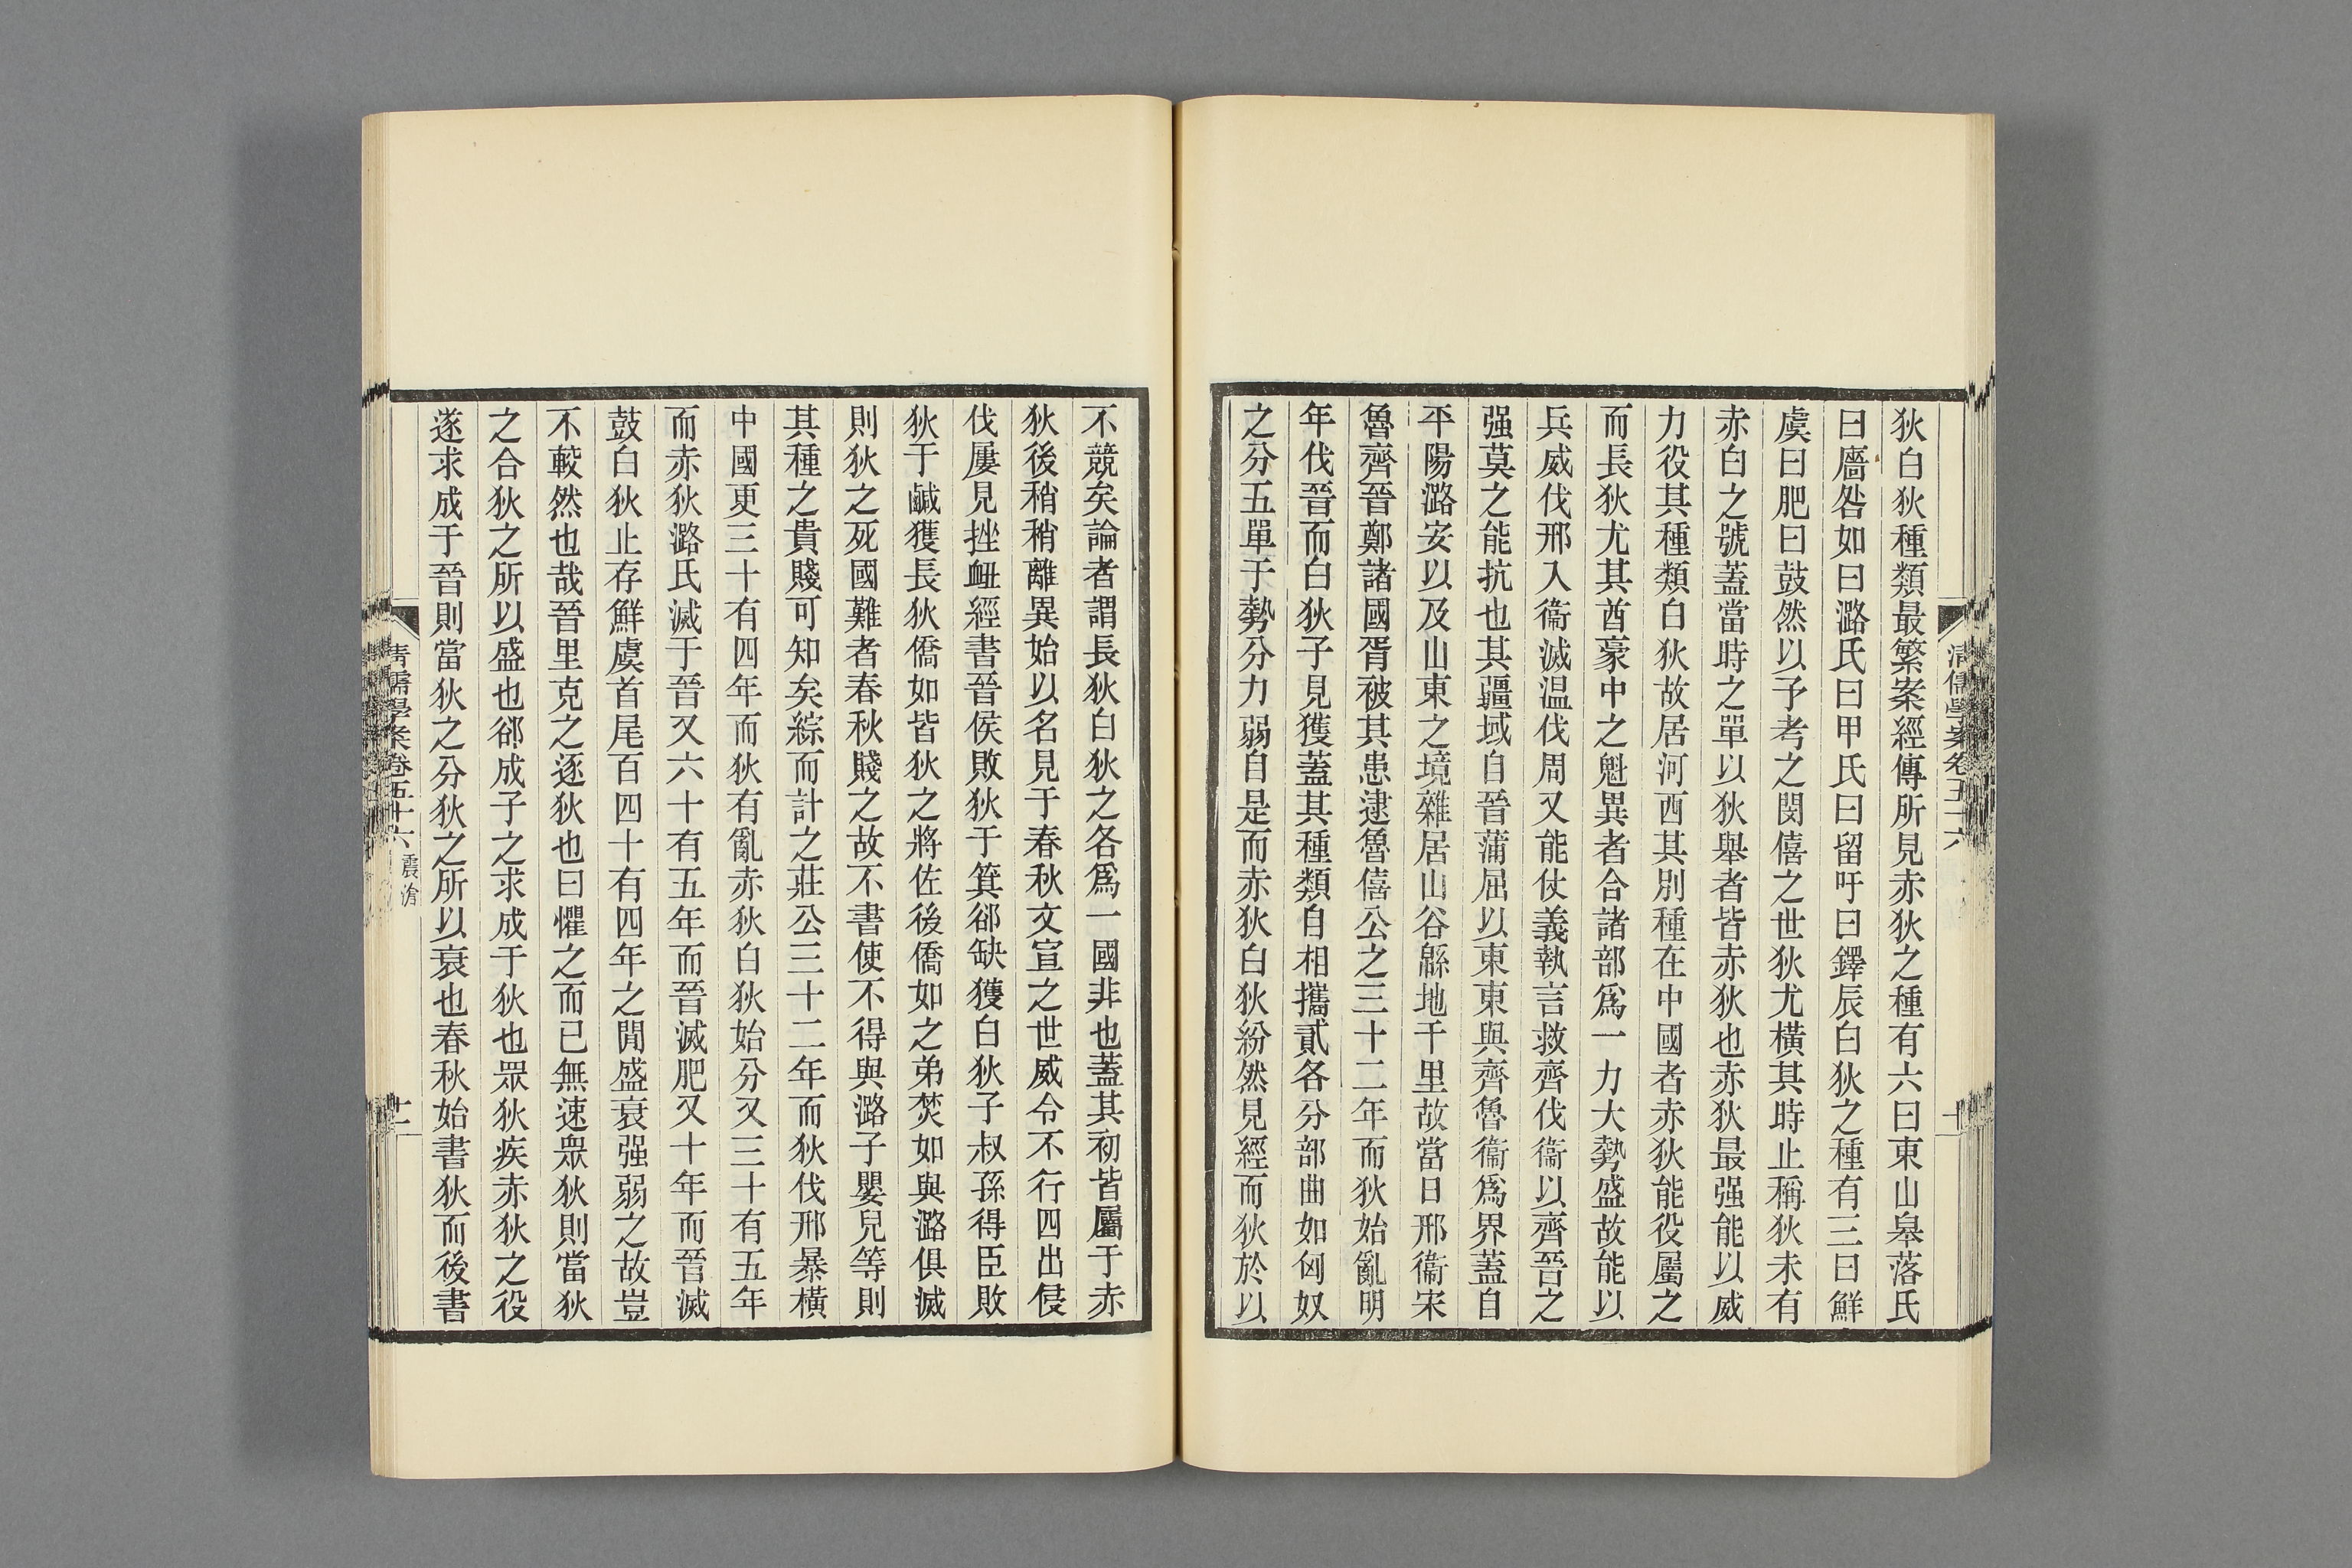 狄白狄種類最繁案經傳所見赤狄之種有六曰東山皋落氏
曰廧咎如曰潞氏曰甲氏曰留吁曰鐸辰白狄之種有三曰鮮
虞曰肥曰鼓然以予考之閔僖之世狄尤橫其時止稱狄未有
赤白之號蓋當時之單以狄舉者皆赤狄也赤狄最强能以威
力役其種類白狄故居河西其別種在中國者赤狄能役屬之
而長狄尤其酋豪中之魁異者合諸部爲一力大勢盛故能以
兵威伐邢入衞滅温伐周又能仗義執言救齊伐衞以齊晉之
强莫之能抗也其疆域自晉蒲屈以東東與齊魯衞爲界蓋自
平陽潞安以及山東之境雜居山谷緜地千里故當日邢衞宋
魯齊晉鄭諸國胥被其患逮魯僖公之三十二年而狄始亂明
年伐晉而白狄子見獲蓋其種類自相攜貳各分部曲如匈奴
之分五單于勢分力弱自是而赤狄白狄紛然見經而狄於以
清儒學案卷五十六
十
不競矣論者謂長狄白狄之各爲一國非也蓋其初皆屬于赤
狄後稍稍離異始以名見于春秋文宣之世威令不行四出侵
伐屢見挫衂經書晉侯敗狄于箕郤缺獲白狄子叔孫得臣敗
狄于鹹獲長狄僑如皆狄之將佐後僑如之弟焚如與潞俱滅
則狄之死國難者春秋賤之故不書使不得與潞子嬰兒等則
其種之貴賤可知矣綜而計之莊公三十二年而狄伐邢暴橫
中國更三十有四年而狄有亂赤狄白狄始分又三十有五年
而赤狄潞氏滅于晉又六十有五年而晉滅肥又十年而晉滅
鼓白狄止存鮮虞首尾百四十有四年之閒盛衰强弱之故豈
不較然也哉晉里克之逐狄也曰懼之而已無速衆狄則當狄
之合狄之所以盛也郤成子之求成于狄也眾狄疾赤狄之役
遂求成于晉則當狄之分狄之所以衰也春秋始書狄而後書
清儒學案卷五十六 震滄
十一